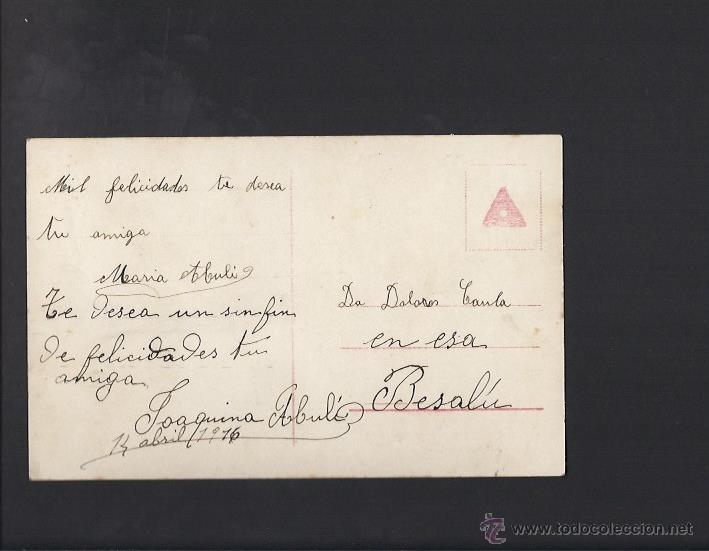 Mil felicidades te desea
tu amiga
Maria Abulí
Te desea un sinfin
de felicidades tu
amiga
Joaquina Abulí
14 abril 1916
Da Dolores Caula
en esa
Besalú
www.todocoleccion.net